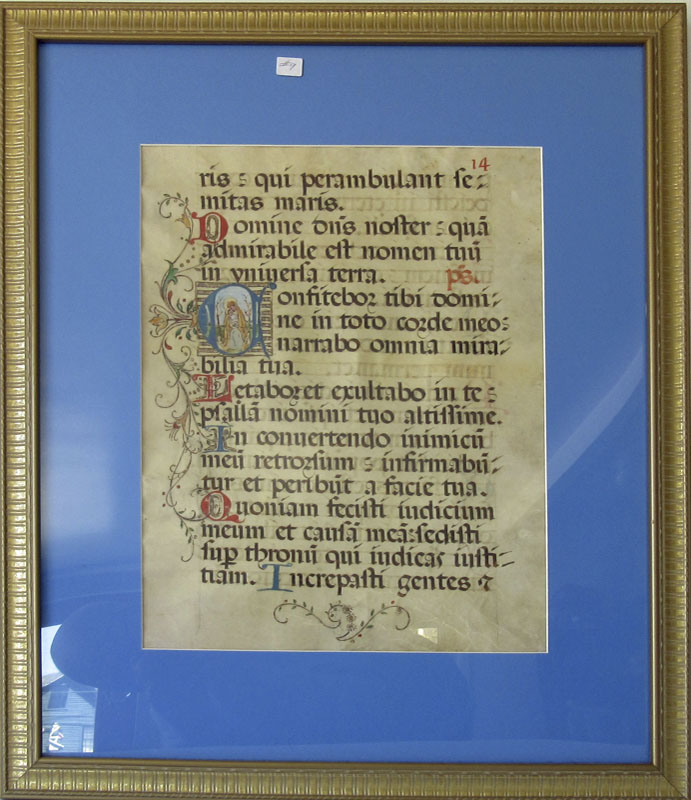 #9
14
ris : qui perambulant se-
mitas maris.
Domine dñs noster : quã
admirabile est nomen tuũ
in vniuersa terra. ps.
Confitebor tibi domi-
ne in toto corde meo:
narrabo omnia mira-
bilia tua.
Letabor et exultabo in te :
psallã nomini tuo altissime.
In conuertendo inimicũ
meũ retrorsum : infirmabũ-
tur et peribũt a facie tua.
Quoniam fecisti iudicium
meum et causã meã: sedisti
sup thronũ qui iudicas iusti-
tiam. Increpasti gentes ⁊